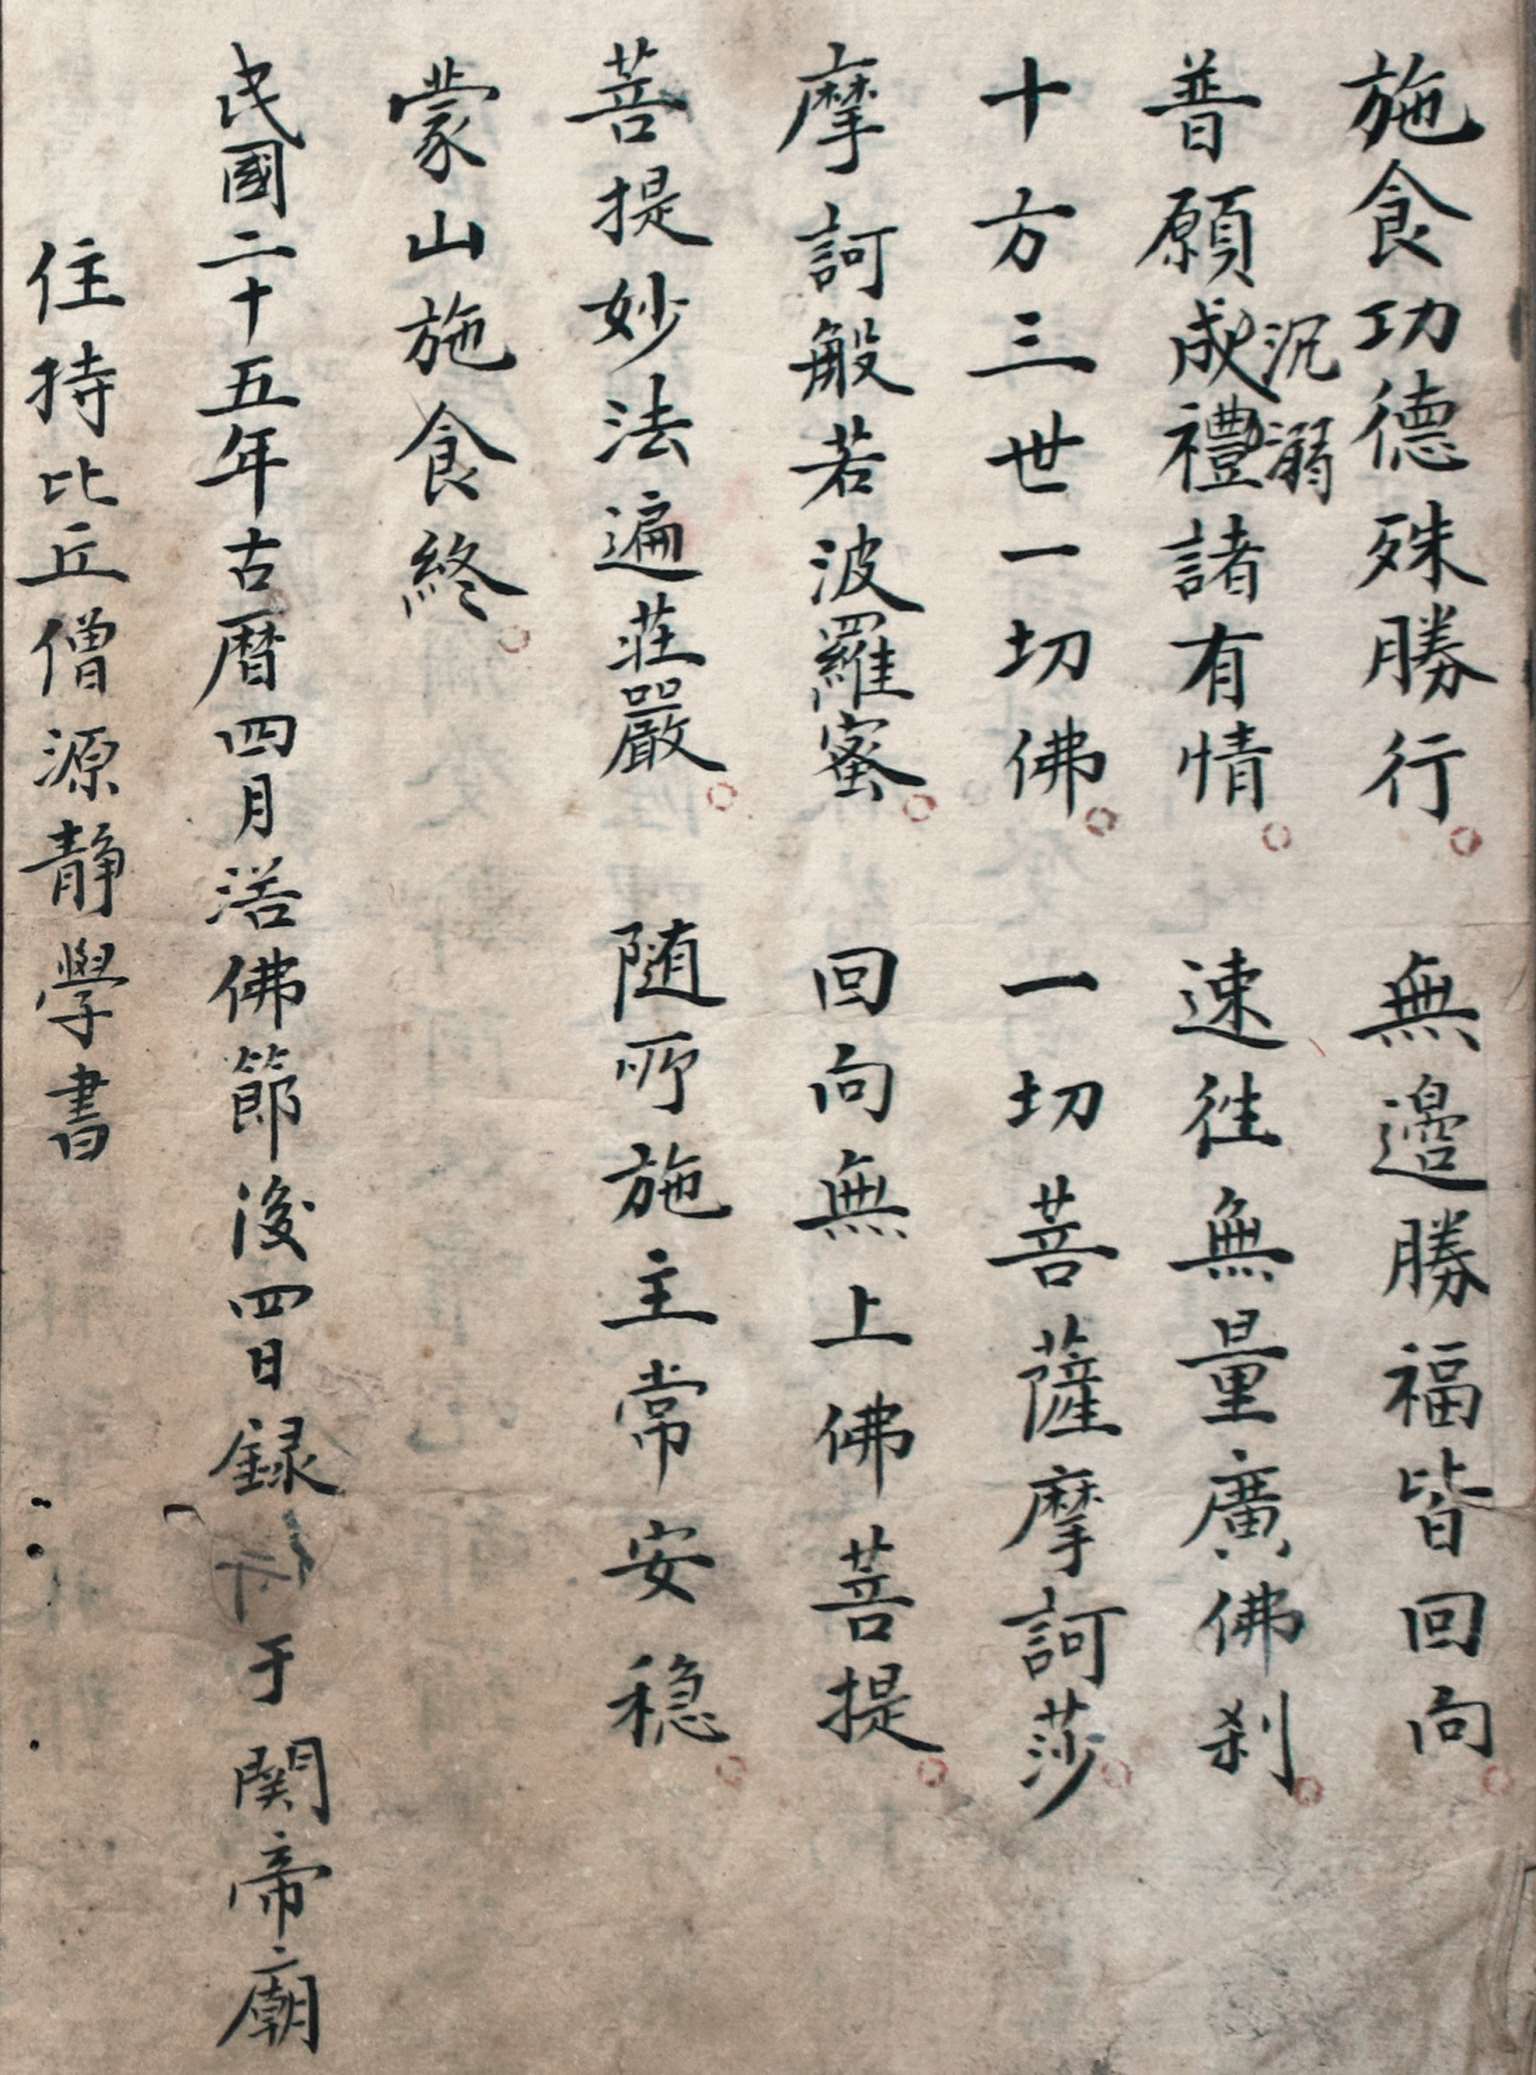 施食功德殊勝行　無邊勝福皆回向
普願成禮諸有情　速徃無量廣佛刹
沉溺
十方三世一切佛　一切菩薩摩訶莎
摩訶般若波羅蜜　回向無上佛菩提
菩提妙法遍莊嚴　随所施主常安穏
蒙山施食終
民國二十五年古曆四月浴佛節後四日録于関帝廟
住持比丘僧源静學書